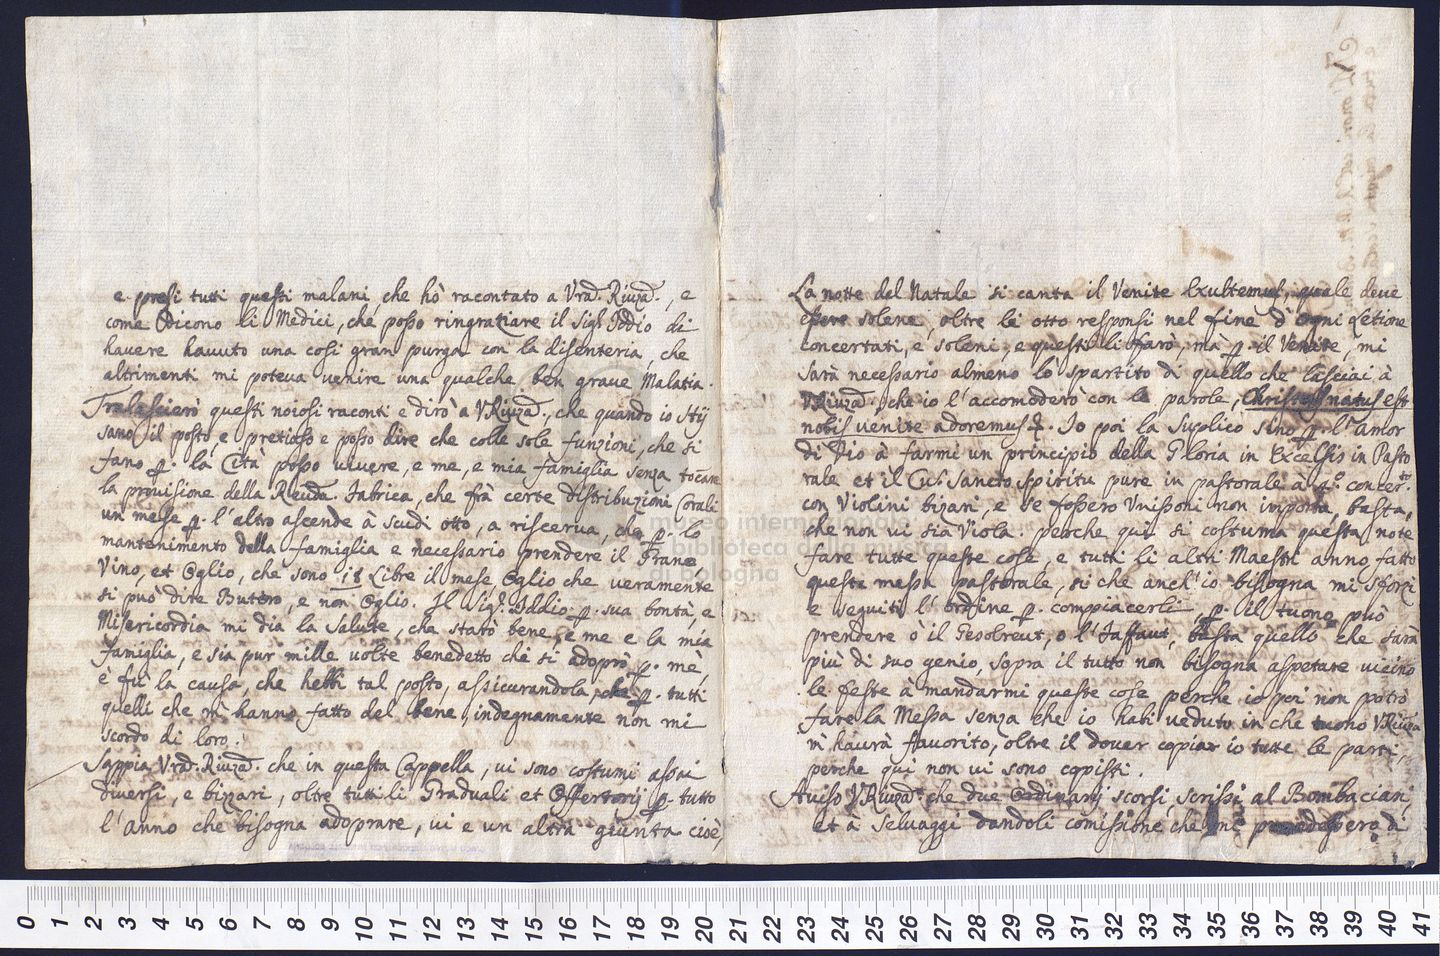 e presi tutti questi malani, che hò racontato a Vrã. Riuzã., e
come dicono li Medici, che posso ringratiare il Sig. Iddio di
hauere hauuto una cosi gran purga con la disenteria, che
altrimenti mi poteua venire una qualche ben graue Malatia.
Tralascierò questi noiosi raconti e dirò a VRiuzã., che quando io stij
sano, il posto è pretioso e posso dire che colle sole funzioni, che si
fano p. la Cità posso viuere, e me, e mia famiglia senza tocare
la prouisione della Reuda. Fabrica, che frà certe distribuzioni Corali
un mese p. l'altro ascende à scudi otto, a riserua, che p. lo
mantenimento della famiglia e necessario prendere il Grane
Vino, et Oglio, che sono 18 Libre il mese Oglio che ueramente
si può dire Butero, e non Oglio. Il Sig. Iddio p. sua bontà, e
Misericordia mi dia la Salute, che starò bene, e me e la mia
famiglia, e sia pur mille uolte benedetto chi si adoprò p. mè,
e fù la causa, che hebbi tal posto, assicurandola, che p. tutti
quelli che m'hanno fatto del bene, indegnamente non mi
scordo di loro.
Sappia Vrã. Riuzã. che in questa Cappella, ui sono costumi assai
diuersi, e bizzari, oltre tutti li Graduali et Offertorij p. tutto
l'anno che bisogna adoprare, ui e un altra giunta cioè,
La notte del Natale si canta il Venite Exultemus, quale deue
essere solene, oltre le otto responsi nel fine d'ogni Letione
concertati, e soleni, e questi li farò, mà p. il Venite, mi
sarà necessario almeno lo spartito di quello che lasciai à
VRiuzã., che io l'accomoderò con le parole, Christus natus est
nobis venite adoremus. Io poi la Suplico sino p. l'amor
di Dio à farmi un principio della Gloria in Excelsis in Pasto
rale et il Cus. Sancto Spiritu pure in pastorale à 4o. concerto.
con Violini bizari, e se fossero Unissoni non importa, basta,
che non ui sia Viola. perche qui si costuma questa note
fare tutte queste cose, e tutti li altri Maestri anno fatto
questa messa pastorale, si che anch'io bisogna mi sforzi
e seguiti l'ordine p. compiacerli, p. il tuono può
prendere ò il Gesolreut, o l'Faffaut, basta quello che sarà
più di suo genio, sopra il tutto non bisogna aspetare uicino
le feste à mandarmi queste cose perche io poi non potrò
fare la Messa senza che io habi ueduto in che tuono VRiuzã
m'haurà fauorito, oltre il douer copiar io tutte le parti,
perche qui non ui sono copisti.
Auiso VRiuzã. che due Ordinarij scorsi, scrissi al Bombaciari,
et à Seluaggi dandoli comissione che ne à